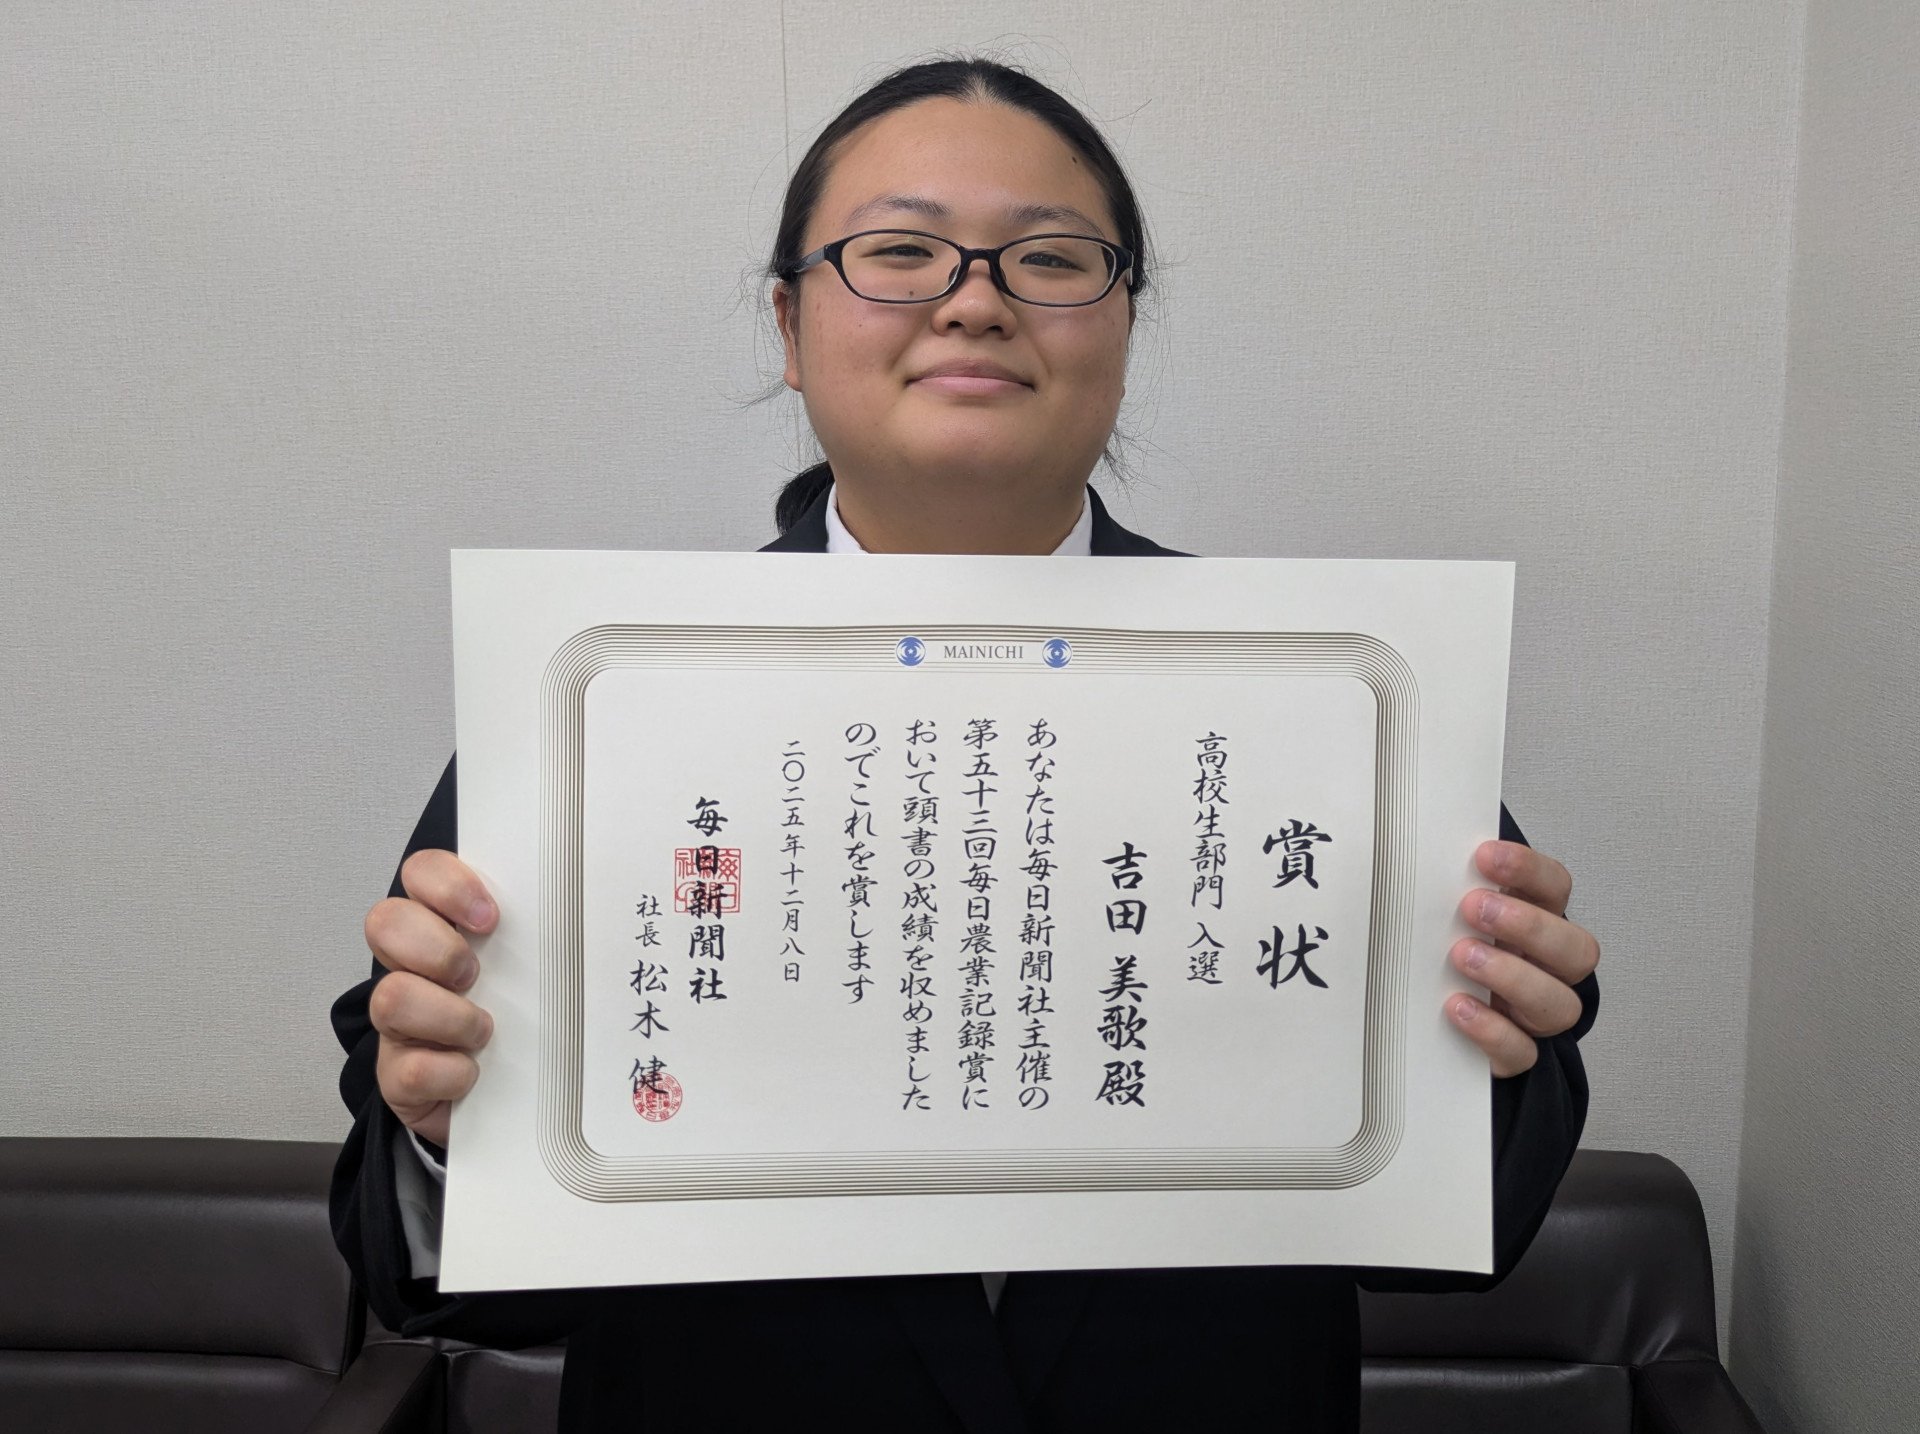 MAINICHI
賞状
高校生部門 入選
吉田 美歌 殿
あなたは毎日新聞社主催の
第五十三回毎日農業記録賞に
おいて頭書の成績を収めました
のでこれを賞します
二〇二五年十二月八日
毎日新聞社
社長 松木 健